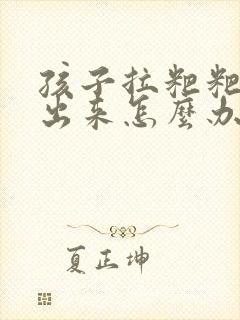 孩子拉粑粑
出来怎麽办
夏正坤